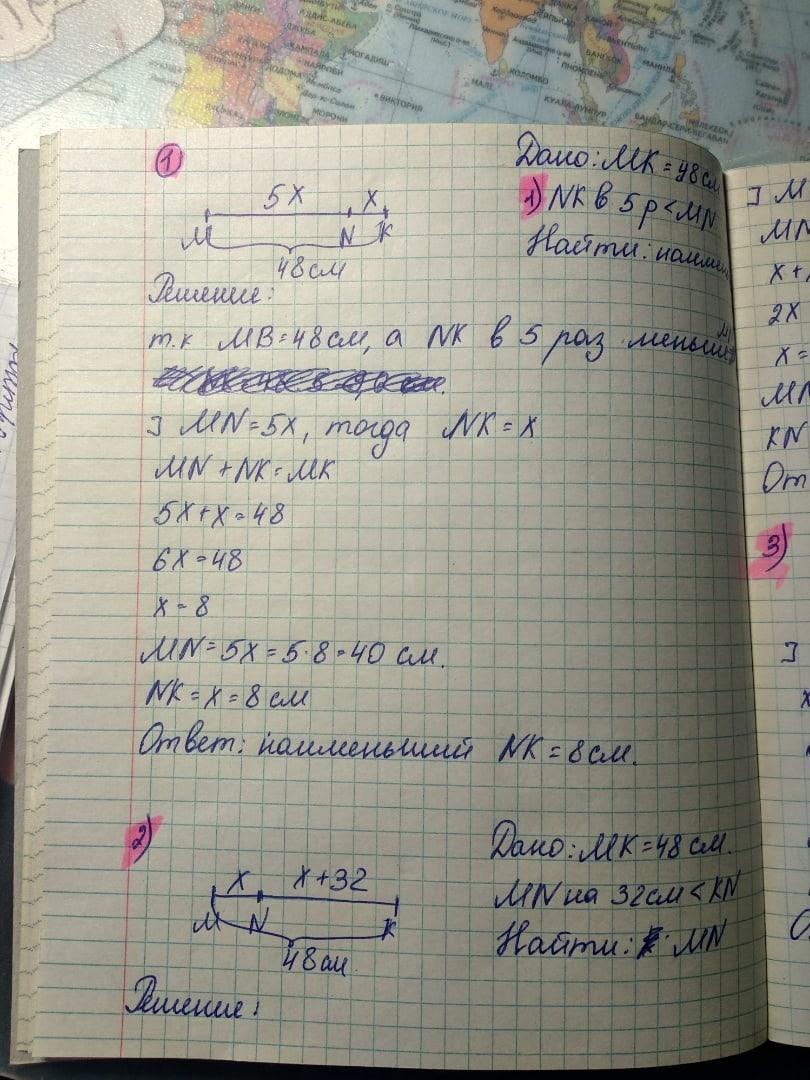 МОГАДИШО
НАЙРОБИ
ВИКТОРИЯ
МОРОНИ
КОЛОМБО
МАЛЕ
КУАЛА-ЛУМПУР
БАНГКОК
МАНИЛА
БАНДАР-СЕРИ-БЕГАВАН
1
Дано: MK = 48 см
5x x
1) NK в 5 р < MN
M N K
Найти: наимен
48 см
Решение:
т.к MB = 48 см, а NK в 5 раз меньше
] MN = 5x, тогда NK = x
MN + NK = MK
5x + x = 48
6x = 48
x = 8
MN = 5x = 5·8 = 40 см.
NK = x = 8 см
Ответ: наименьший NK = 8 см.
2)
Дано: MK = 48 см.
x x + 32
MN на 32 см < KN
M N K
Найти: MN
48 см
Решение:
] M
MN
x +
2x
x =
MN
KN
От
3)
]
x